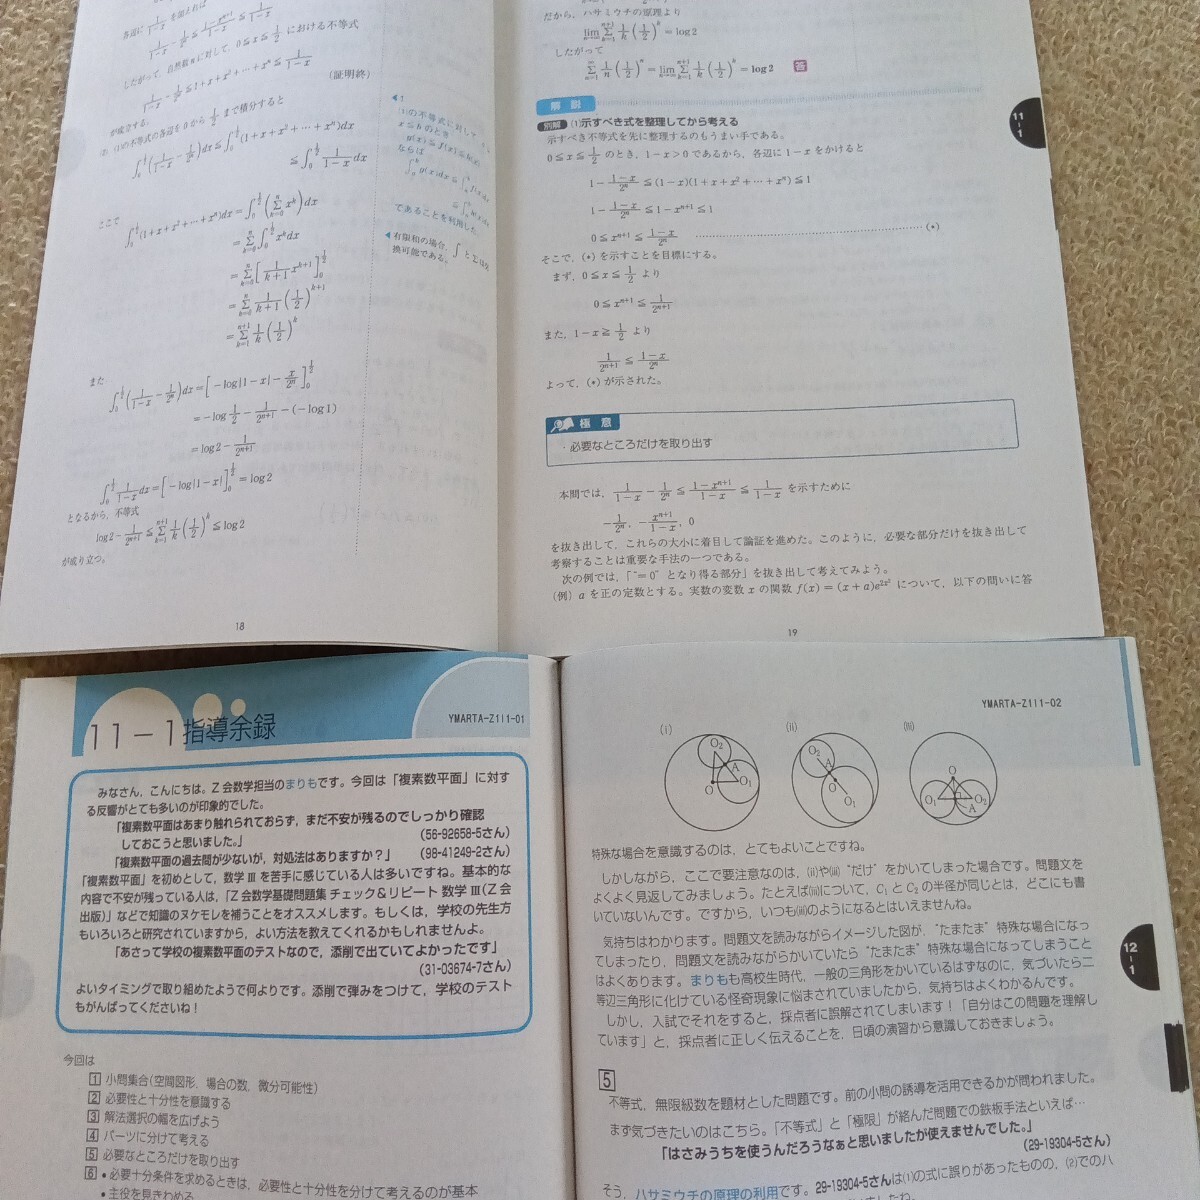 各辺に 1/(1-x) を加えれば
1/(1-x) - 1/2ⁿ ≦ (1-xⁿ⁺¹)/(1-x) ≦ 1/(1-x)
したがって，自然数nに対して，0≦x≦1/2 における不等式
1/(1-x) - 1/2ⁿ ≦ 1+x+x²+…+xⁿ ≦ 1/(1-x)
が成立する。
(証明終)
(1)の不等式の各辺を0から 1/2 まで積分すると
∫₀^{1/2} (1/(1-x) - 1/2ⁿ)dx ≦ ∫₀^{1/2} (1+x+x²+…+xⁿ)dx
≦ ∫₀^{1/2} 1/(1-x) dx
ここで
∫₀^{1/2} (1+x+x²+…+xⁿ)dx = ∫₀^{1/2} (Σ_{k=0}^{n} xᵏ)dx
= Σ_{k=0}^{n} ∫₀^{1/2} xᵏdx
= Σ_{k=0}^{n} [1/(k+1) xᵏ⁺¹]₀^{1/2}
= Σ_{k=0}^{n} 1/(k+1) (1/2)ᵏ⁺¹
= Σ_{k=1}^{n+1} 1/k (1/2)ᵏ
また
∫₀^{1/2} (1/(1-x) - 1/2ⁿ)dx = [-log|1-x| - x/2ⁿ]₀^{1/2}
= -log 1/2 - 1/2ⁿ⁺¹ - (-log1)
= log2 - 1/2ⁿ⁺¹
∫₀^{1/2} 1/(1-x) dx = [-log|1-x|]₀^{1/2} = log2
となるから，不等式
log2 - 1/2ⁿ⁺¹ ≦ Σ_{k=1}^{n+1} 1/k (1/2)ᵏ ≦ log2
が成り立つ。
◀1
(1)の不等式に対して
ならば
であることを利用した。
◀有限和の場合，∫ とΣは交
換可能である。
18
だから，ハサミウチの原理より
lim_{n→∞} Σ_{k=1}^{n+1} 1/k (1/2)ᵏ = log2
したがって
Σ_{n=1}^{∞} 1/n (1/2)ⁿ = lim_{n→∞} Σ_{k=1}^{n+1} 1/k (1/2)ᵏ = log2 答
解 説
別解 (1)示すべき式を整理してから考える
示すべき不等式を先に整理するのもうまい手である。
0≦x≦1/2 のとき，1-x>0であるから，各辺に1-xをかけると
1 - (1-x)/2ⁿ ≦ (1-x)(1+x+x²+…+xⁿ) ≦ 1
1 - (1-x)/2ⁿ ≦ 1-xⁿ⁺¹ ≦ 1
0 ≦ xⁿ⁺¹ ≦ (1-x)/2ⁿ ………(*)
そこで，(*)を示すことを目標にする。
まず，0≦x≦1/2 より
0 ≦ xⁿ⁺¹ ≦ 1/2ⁿ⁺¹
また，1-x≧1/2 より
1/2ⁿ⁺¹ ≦ (1-x)/2ⁿ
よって，(*)が示された。
極 意
・必要なところだけを取り出す
本問では，1/(1-x) - 1/2ⁿ ≦ (1-xⁿ⁺¹)/(1-x) ≦ 1/(1-x) を示すために
-1/2ⁿ，-xⁿ⁺¹/(1-x)，0
を抜き出して，これらの大小に着目して論証を進めた。このように，必要な部分だけを抜き出して
考察することは重要な手法の一つである。
次の例では，「"＝0" となり得る部分」を抜き出して考えてみよう。
(例) aを正の定数とする。実数の変数xの関数f(x)=(x+a)e^{2x²} について，以下の問いに答
19
11-1
11－1指導余録
YMARTA-Z1I1-01
みなさん，こんにちは。Z会数学担当のまりもです。今回は「複素数平面」に対す
る反響がとても多いのが印象的でした。
「複素数平面はあまり触れられておらず，まだ不安が残るのでしっかり確認
しておこうと思いました。」
(56-92658-5さん)
「複素数平面の過去問が少ないが，対処法はありますか？」
(98-41249-2さん)
「複素数平面」を初めとして，数学Ⅲを苦手に感じている人は多いですね。基本的な
内容で不安が残っている人は，「Z会数学基礎問題集 チェック＆リピート 数学Ⅲ(Z会
出版)」などで知識のヌケモレを補うことをオススメします。もしくは，学校の先生方
もいろいろと研究されていますから，よい方法を教えてくれるかもしれませんよ。
「あさって学校の複素数平面のテストなので，添削で出ていてよかったです」
(31-03674-7さん)
よいタイミングで取り組めたようで何よりです。添削で弾みをつけて，学校のテスト
もがんばってくださいね！
今回は
1 小問集合(空間図形，場合の数，微分可能性)
2 必要性と十分性を意識する
3 解法選択の幅を広げよう
4 パーツに分けて考える
5 必要なところだけを取り出す
6 •必要十分条件を求めるときは，必要性と十分性を分けて考えるのが基本
•主役を見きわめる
YMARTA-Z1I1-02
(i)
(ii)
(iii)
O₂
A
O
O₁
O₂
A
O
O₁
O
O₁
O₂
A
特殊な場合を意識するのは，とてもよいことですね。
しかしながら，ここで要注意なのは，(ii)や(iii) "だけ" をかいてしまった場合です。問題文を
よくよく見返してみましょう。たとえば(iii)について，C₁とC₂の半径が同じとは，どこにも書
いていないんです。ですから，いつも(iii)のようになるとはいえませんね。
気持ちはわかります。問題文を読みながらイメージした図が，"たまたま" 特殊な場合になっ
てしまったり，問題文を読みながらかいていたら "たまたま" 特殊な場合になってしまうこと
はよくあります。まりもも高校生時代，一般の三角形をかいているはずなのに，気づいたら二
等辺三角形に化けている怪奇現象に悩まされていましたから，気持ちはよくわかるんです。
しかし，入試でそれをすると，採点者に誤解されてしまいます！「自分はこの問題を理解し
ています」と，採点者に正しく伝えることを，日頃の演習から意識しておきましょう。
5
不等式，無限級数を題材とした問題です。前の小問の誘導を活用できるかが問われました。
まず気づきたいのはこちら。「不等式」と「極限」が絡んだ問題での鉄板手法といえば…
「はさみうちを使うんだろうなぁと思いましたが使えませんでした。」
(29-19304-5さん)
そう，ハサミウチの原理の利用です。29-19304-5さんは(1)の式に誤りがあったものの，(2)でのハ
12-1